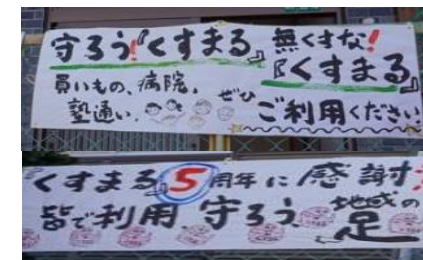 守ろう!『くすまる』 無くすな!
『くすまる』
買いもの、病院、
塾通い、 ぜひ ご利用ください
『くすまる』5周年に感謝!
皆で利用 守ろう 地域の足